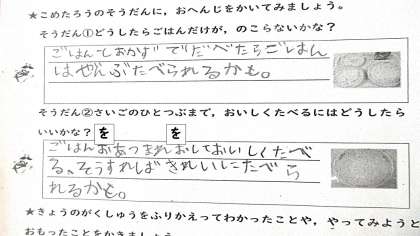 ★こめたろうのそうだんに，おへんじをかいてみましょう。
そうだん①どうしたらごはんだけが，のこらないかな？
ごはんとおかずでたべたらごはん
はぜんぶたべられるかも。
そうだん②さいごのひとつぶまで，おいしくたべるにはどうしたら
いいかな？ を を
ごはんおあつまれおしておいしくたべ
る、そうすればきれいにたべら
れるかも。
★きょうのがくしゅうをふりかえってわかったことや，やってみようと
おもったことをかきましょう。